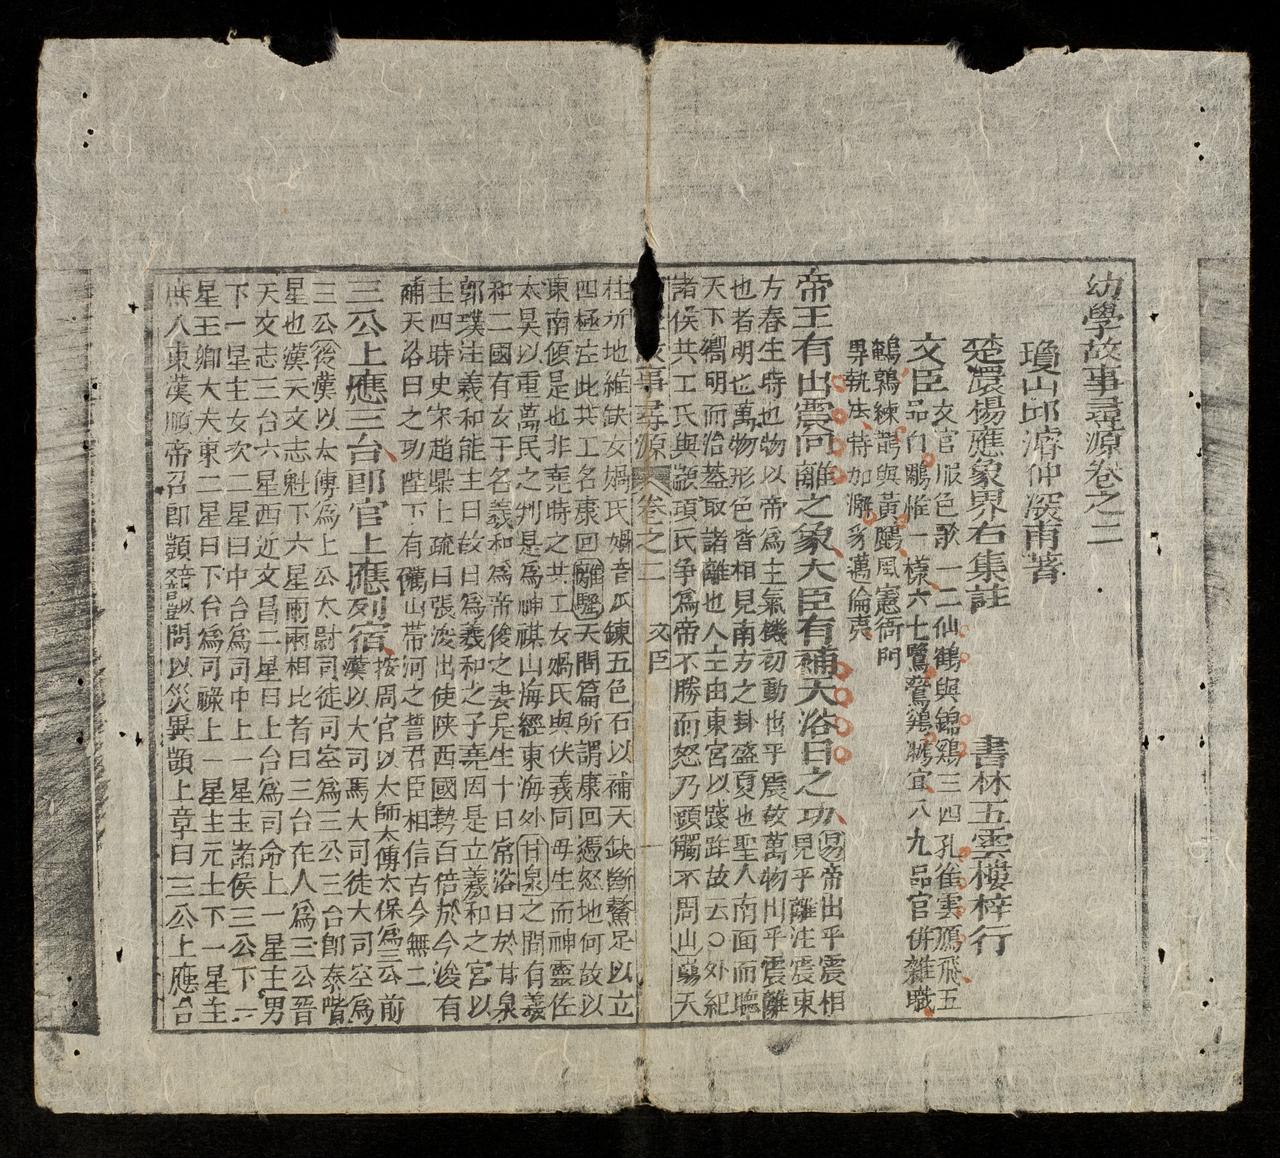 幼學故事尋源卷之二
瓊山邱濬仲深甫著
楚澴楊應象界右集註　書林五雲樓梓行
文臣
文官服色歌一二仙鶴與錦鷄三四孔雀雲鴈飛五
品白鷴惟一樣六七鷺鷥鸂鶒宜八九品官併雜職
鵪鶉練鵲與黃鸝風憲衙門
專執法特加獬豸邁倫夷
帝王有出震向離之象大臣有補天浴日之功
易帝出乎震相
見乎離注震東
方春生時也物以帝為主氣機初動出乎震故萬物出乎震離
也者明也萬物形色皆相見南方之卦盛夏也聖人南面而聽
天下嚮明而治葢取諸離也人主由東宮以踐阼故云○外紀
諸侯共工氏與顓頊氏爭為帝不勝而怒乃頭觸不周山崩天
故事尋源　卷之二　文臣　一
柱折地維缺女媧氏媧音瓜鍊五色石以補天缺斷鰲足以立
四極注此共工名康回離騷天問篇所謂康回憑怒地何故以
東南傾是也非堯時之共工女媧氏與伏義同母生而神靈佐
太昊以重萬民之判是為神禖山海經東海外甘泉之間有義
和二國有女子名義和為帝俊之妻是生十日常浴日於甘泉
郭璞注義和能主日故曰為義和之子堯因是立義和之宮以
主四時史宋趙鼎上疏曰張浚出使陝西國勢百倍於今浚有
補天浴日之功陛下有礪山帶河之誓君臣相信古今無二
三公上應三台郎官上應列宿
按周官以太師太傅太保為三公前
漢以大司馬大司徒大司空為
三公後漢以太傅為上公太尉司徒司空為三公三台郎泰階
星也漢天文志魁下六星兩兩相比者曰三台在人為三公晉
天文志三台六星西近文昌二星曰上台為司命上一星主男
下一星主女次二星曰中台為司中上一星主諸侯三公下一
星王卿大夫東二星曰下台為司祿上一星主元士下一星主
庶人東漢順帝召郎顗問以災異顗上章曰三公上應台